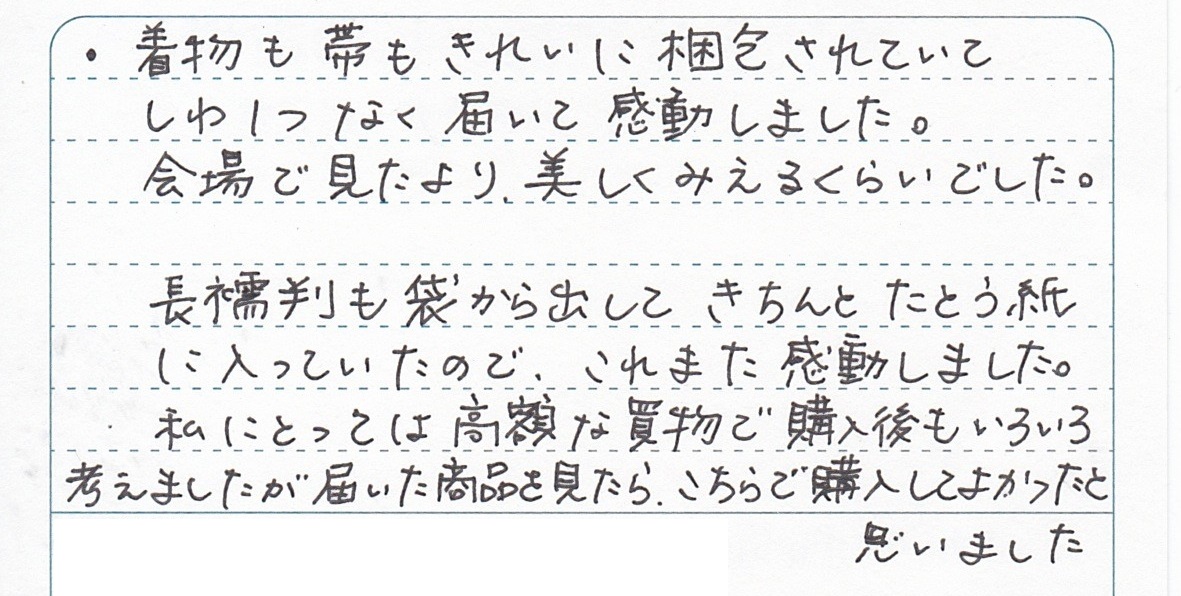 ・着物も帯もきれいに梱包されていて
しわ1つなく届いて感動しました。
会場で見たより、美しくみえるくらいでした。
長襦判も袋から出してきちんとたとう紙
に入っていたので、これまた感動しました。
私にとっては高額な買物で購入後もいろいろ
考えましたが届いた商品を見たら、こちらで購入してよかったと
思いました